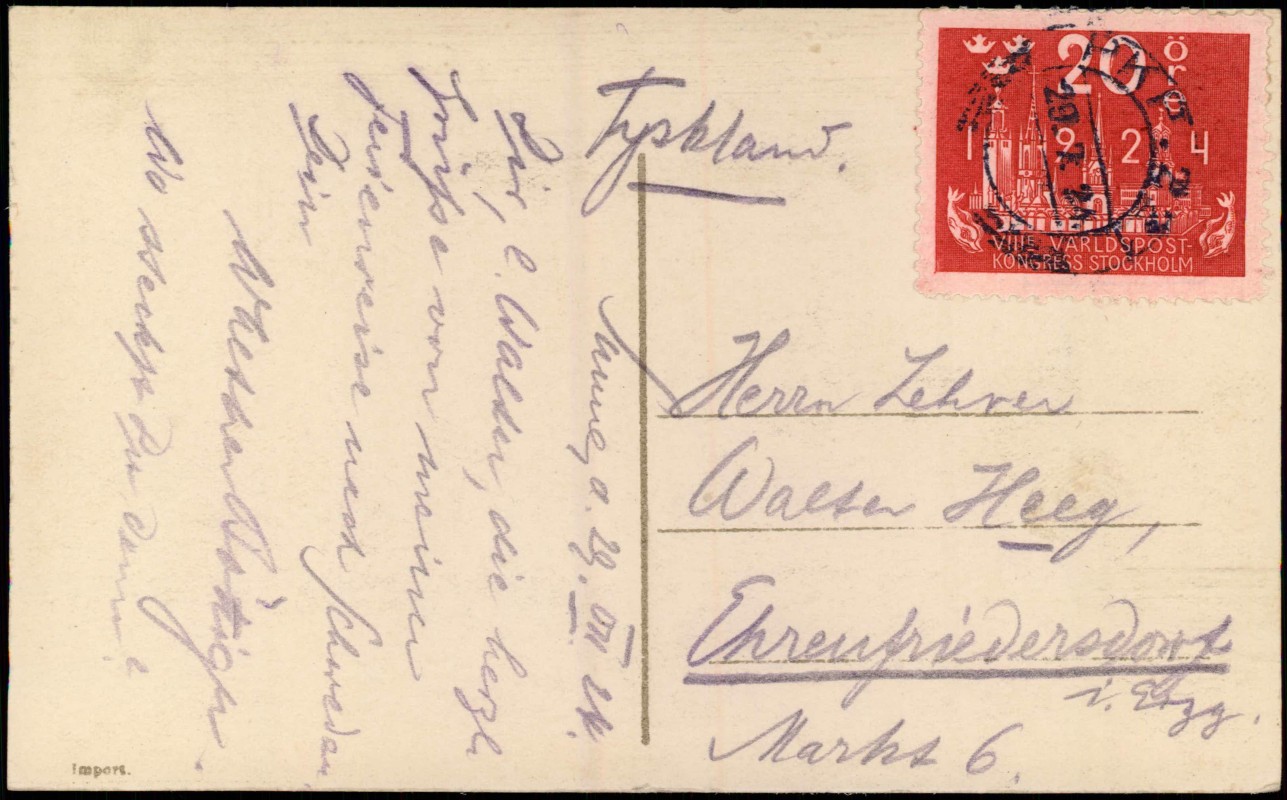 20 öre
1924
VIIIE VÄRLDSPOST-
KONGRESS STOCKHOLM
PKP
Tyskland.
Herrn Lehrer
Walter Heeg,
Ehrenfriedersdorf
i. Erzg.
Markt 6.
d. 29. VII 24.
Dir, l. Walter, die herzl.
Grüße von meiner
Ferienreise nach Schweden.
Dein
Walther
Wo steckst Du denn?
Import.